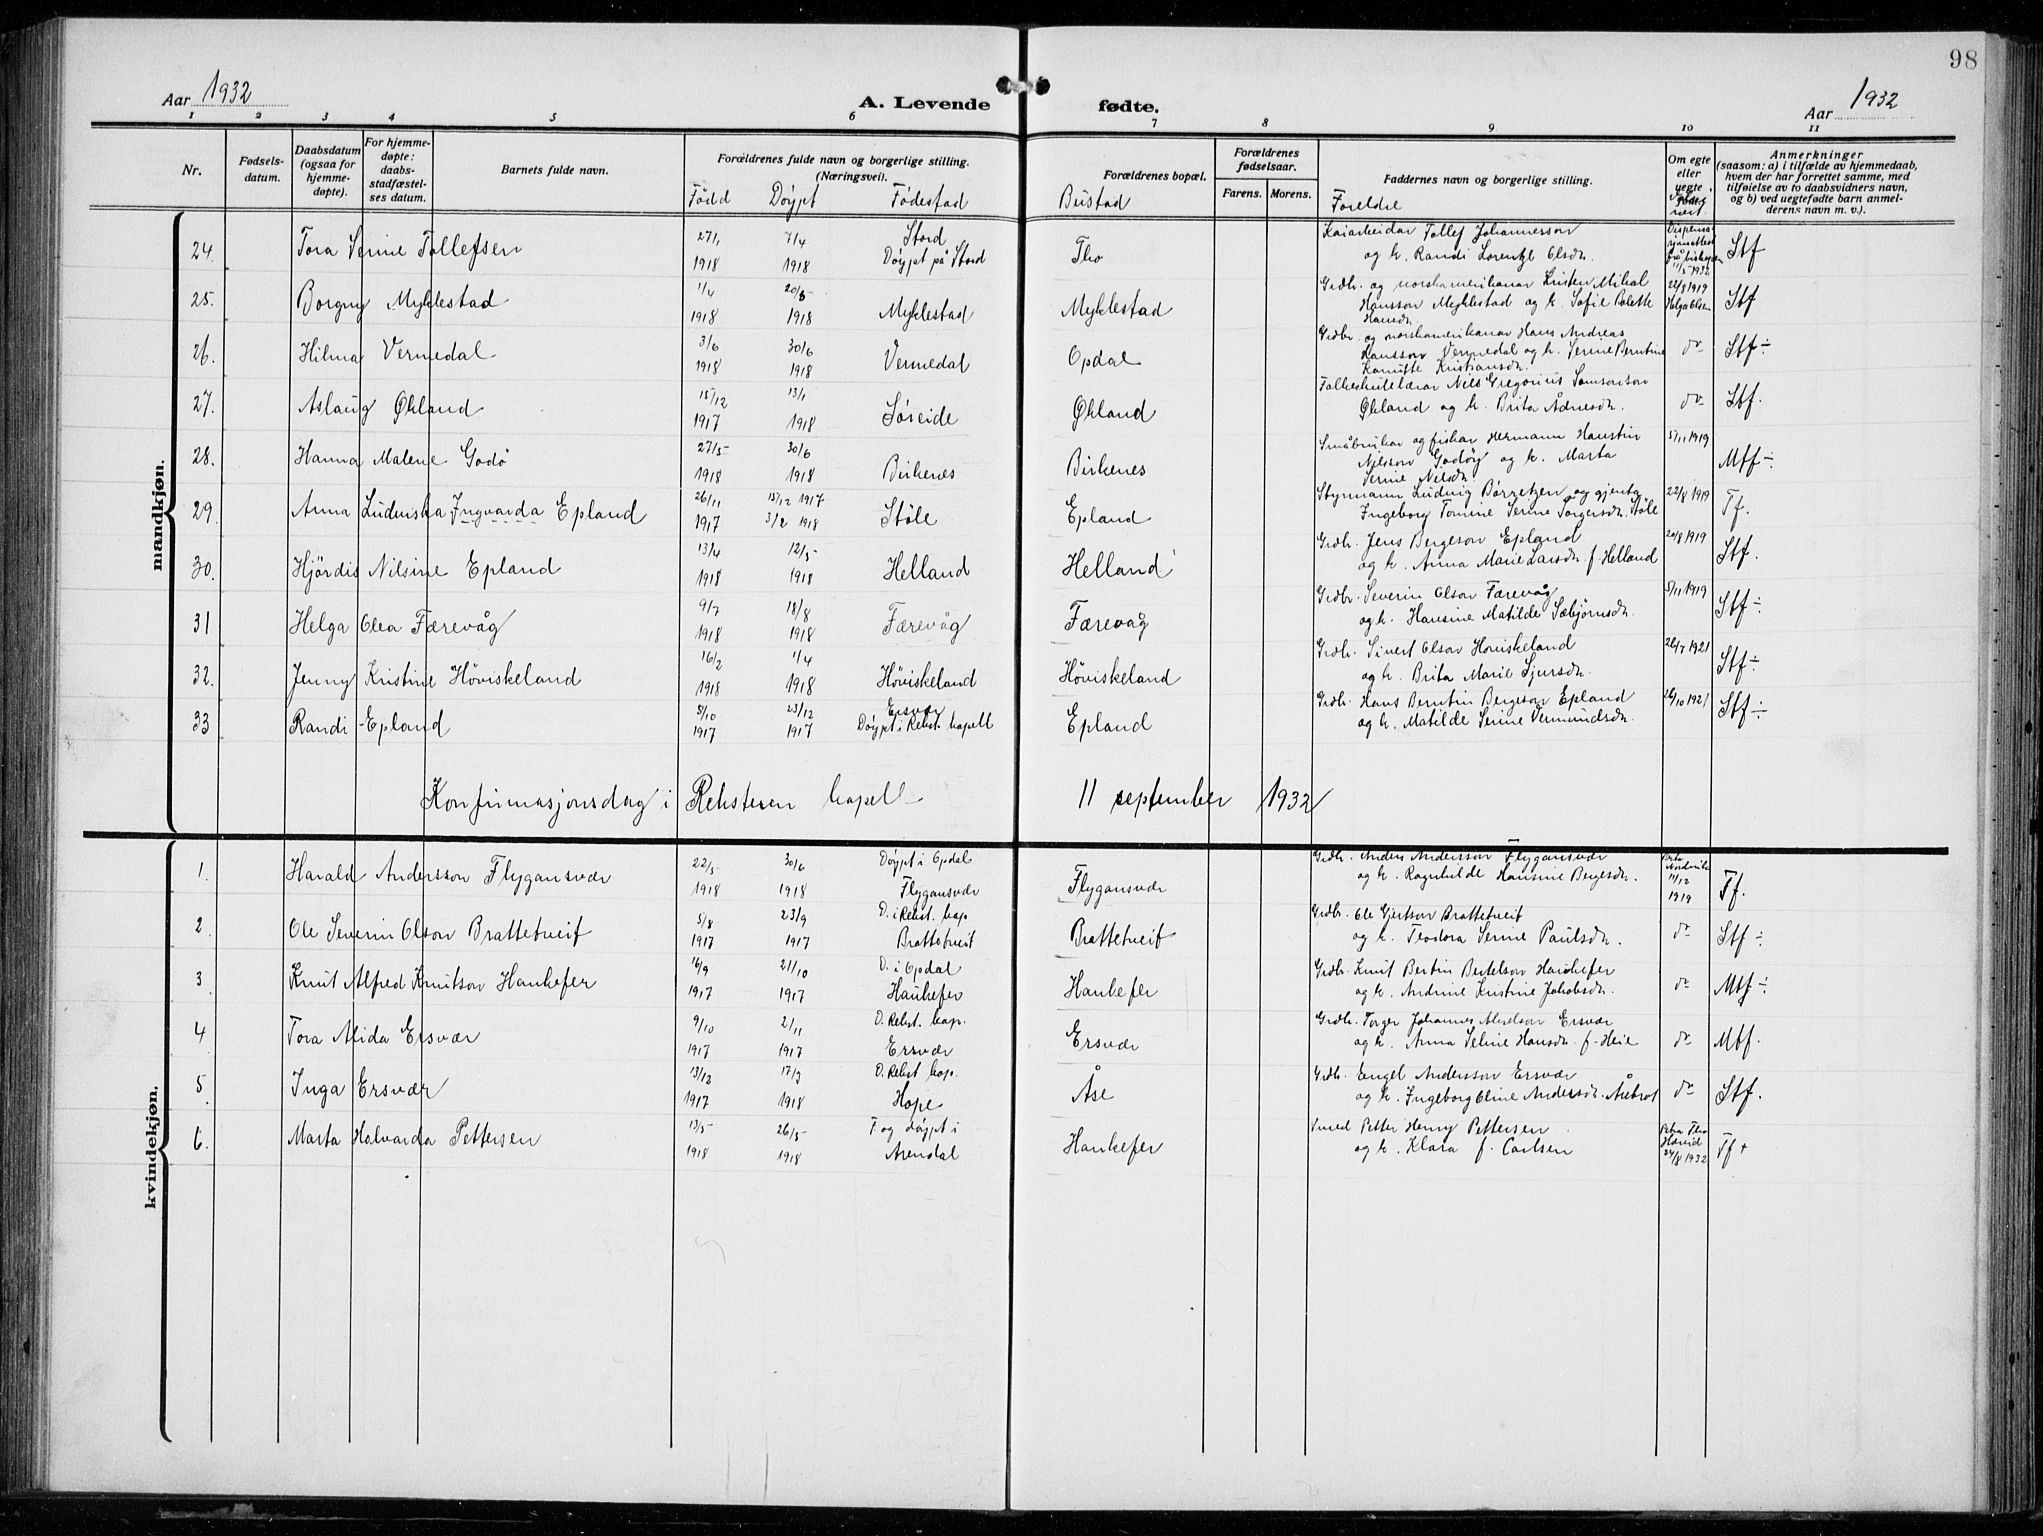 98
Aar 1932
A. Levende
fødte.
Aar 1932
1 2 3 4 5 6 7 8 9 10 11
Nr.
Fødsels-
datum.
Daabsdatum
(ogsaa for
hjemme-
døpte).
For hjemme-
døpte:
daabs-
stadfæstel-
ses datum.
Barnets fulde navn.
Forældrenes fulde navn og borgerlige stilling.
(Næringsvei).
Fødd Døypt Fødestad
Forældrenes bopæl.
Bustad
Forældrenes
fødselsaar.
Farens. Morens.
Faddernes navn og borgerlige stilling.
Foreldre
Om egte
eller
uegte
født.
Anmerkninger
(saasom: a) i tilfælde av hjemmedaab,
hvem der har forrettet samme, med
tilføielse av to daabsvidners navn,
og b) ved uegtefødte barn anmel-
derens navn m. v.).
mandkjøn.
24. Tora Serine Tollefsen 27/1 1918 7/4 1918 Stord Døypt på Stord Tho
Kaiarbeidar Tollef Johannesson
og k. Randi Lorentze Olsdr. 11/5 1932 Stf
25. Borgny Myklestad 1/4 1918 20/5 1918 Myklestad Myklestad
Grdbr. og norskamerikanar Kristen Mikal
Hansson Myklestad og k. Sofie Colette
Hansdr. 22/8 1919 Helga Olsen Stf
26. Hilma Vermedal 3/6 1918 30/6 1918 Vermedal Opdal
Grdbr. og norskamerikanar Hans Andreas
Hansson Vermedal og k. Serine Berntine
Kamitte Kristiansdr. do Stf ÷
27. Aslaug Økland 15/12 1917 13/1 1918 Søreide Økland
Folkeskulelærar Nils Gregorius Samsonson
Økland og k. Brita Ådnesdr. do Stf.
28. Hanna Malene Godø 27/5 1918 30/6 1918 Birkenes Birkenes
Småbrukar og fiskar Hermann Haustin
Nilsson Godøy og k. Marta
Serine Nilsdr. 5/11 1919 Mtf ÷
29. Anna Ludviska Ingvarda Epland 26/11 1917 15/12 1917 3/2 1918 Støle Epland
Styrmann Ludvig Børretzen og gjenta
Ingeborg Tomine Serine Torgersdr. Støle 22/8 1919 Tf.
30. Hjördis Nilsine Epland 13/4 1918 12/5 1918 Helland Helland
Grdbr. Jens Bergeson Epland
og k. Anna Marie Larsdr. f. Helland 20/8 1919 Stf.
31 Helga Olea Færevåg 9/7 1918 18/8 1918 Færevåg Færevåg
Grdbr. Severin Olson Færevåg
og k. Hansine Matilde Sæbjörnsdr. 5/11 1919 Stf ÷
32. Jenny Kristine Höviskeland 16/2 1918 1/4 1918 Höviskeland Höviskeland
Grdbr. Sivert Olson Höviskeland
og k. Brita Marie Sjursdr. 26/7 1921 Stf ÷
33 Randi Epland 5/10 1917 23/12 1917 Ersvær Døypt i Rekst. kapell Epland
Grdbr. Hans Berntin Bergeson Epland
og k. Matilde Serine Vermundsdr. 26/10 1921 Stf ÷
Konfirmasjonsdag i Reksteren kapell 11 september 1932
kvindekjøn.
1. Harald Andersson Flygansvær 22/5 1918 30/6 1918 Døypt i Opdal Flygansvær Flygansvær
Grdbr. Anders Andersson Flygansvær
og k. Ragnhilde Hansine Bergesdr. 11/12 1919 Tf.
2 Ole Severin Olson Brattetveit 5/8 1917 23/9 1917 D. i Rekst. kap Brattetveit Brattetveit
Grdbr. Ole Gjertson Brattetveit
og k. Teodora Serine Paulsdr. do Stf ÷
3 Knut Alfred Knutson Haukefer 16/9 1917 21/10 1917 D. i Opdal Haukefer Haukefer
Grdbr. Knut Bertin Bertelson Haukefer
og k. Andrine Kristine Jakobsdr. do Mtf ÷
4 Tora Alida Ersvær 9/10 1917 2/11 1917 D. Rekst. kap. Ersvær Ersvær
Grdbr. Torger Johannes Akselson Ersvær
og k. Anna Seline Hansdr. f. Heie do Mtf.
5 Inga Ersvær 13/12 1917 17/3 1918 D. Rekst kap. Hope Åse
Grdbr. Engel Andersson Ersvær
og k. Ingeborg Oline Andersdr. Årbrot do Stf.
6. Marta Halvarda Pettersen 13/5 1918 26/5 1918 F. og døypt i Arendal Haukefer
Smed Petter Henry Pettersen
og k. Klara f. Carlsen 24/8 1932 Tf +